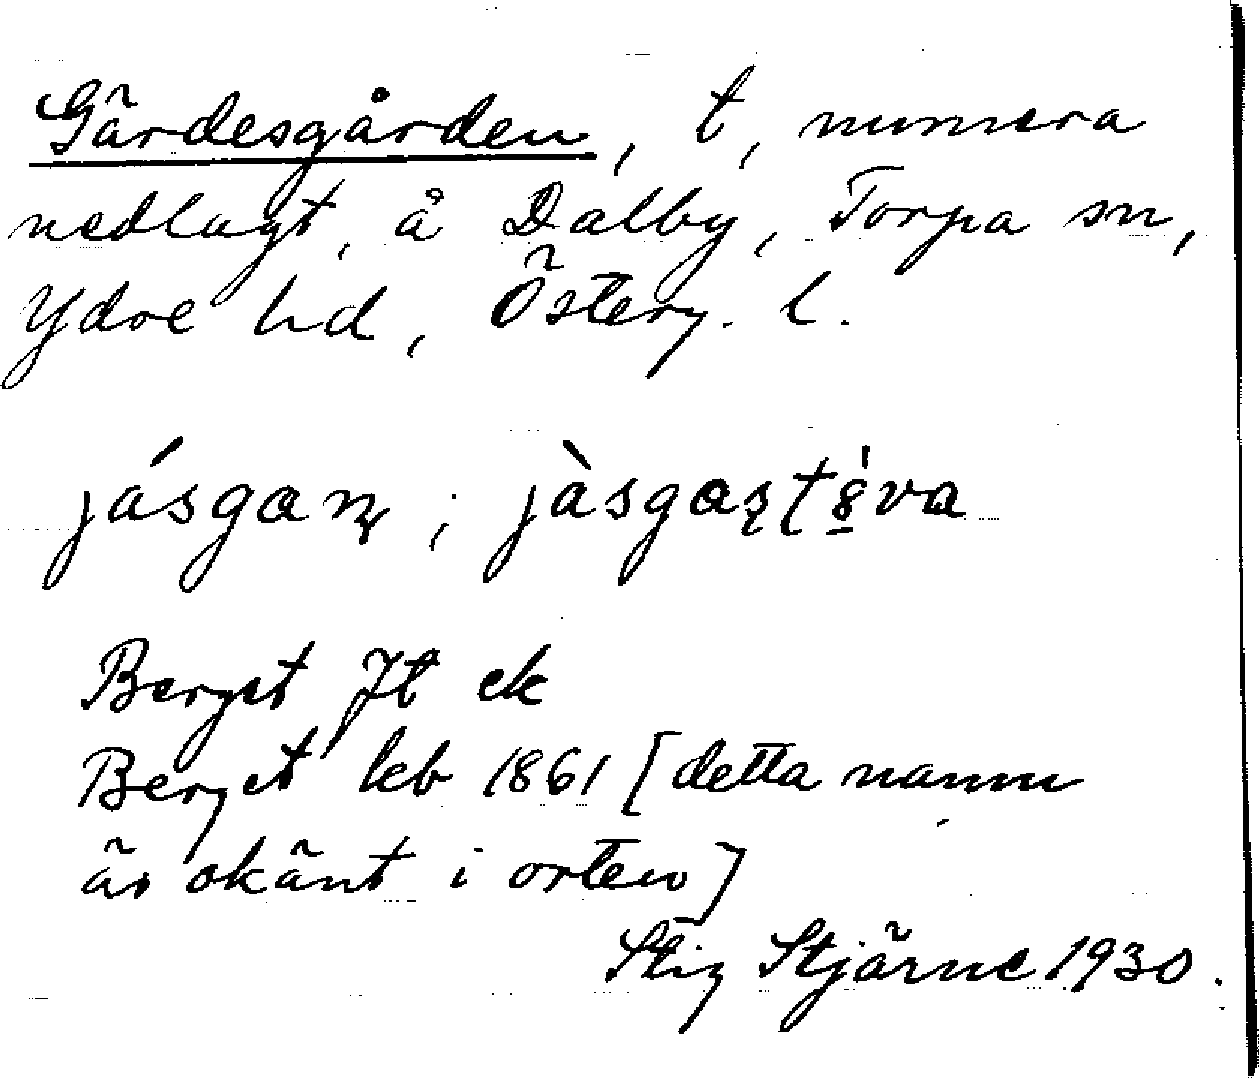 Gärdesgården, t, numera
nedlagt, å Dalby, Torpa sn,
Ydre hd, Österg. l.
jásgaɳ; jàsgaʂtɞ́va
Berget Jt ek
Berget kb 1861 [detta namn
är okänt i orten]
Stig Stjärne 1930.